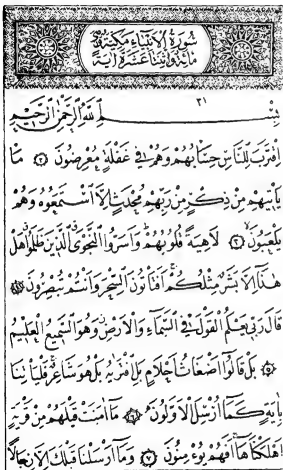 سورة الانبياء مكية وهي
مائة واثنتا عشرة آية
٢١
بِسْمِ اللهِ الرَّحْمٰنِ الرَّحِيمِ
اِقْتَرَبَ لِلنَّاسِ حِسَابُهُمْ وَهُمْ فِي غَفْلَةٍ مُعْرِضُونَ مَا
يَأْتِيهِمْ مِنْ ذِكْرٍ مِنْ رَبِّهِمْ مُحْدَثٍ اِلَّا اسْتَمَعُوهُ وَهُمْ
يَلْعَبُونَ لَاهِيَةً قُلُوبُهُمْ وَاَسَرُّوا النَّجْوَى الَّذِينَ ظَلَمُوا هَلْ
هٰذَا اِلَّا بَشَرٌ مِثْلُكُمْ اَفَتَأْتُونَ السِّحْرَ وَاَنْتُمْ تُبْصِرُونَ
قَالَ رَبِّي يَعْلَمُ الْقَوْلَ فِي السَّمَاءِ وَالْاَرْضِ وَهُوَ السَّمِيعُ الْعَلِيمُ
بَلْ قَالُوا اَضْغَاثُ اَحْلَامٍ بَلِ افْتَرٰيهُ بَلْ هُوَ شَاعِرٌ فَلْيَأْتِنَا
بِاٰيَةٍ كَمَا اُرْسِلَ الْاَوَّلُونَ مَا اٰمَنَتْ قَبْلَهُمْ مِنْ قَرْيَةٍ
اَهْلَكْنَاهَا اَفَهُمْ يُؤْمِنُونَ وَمَا اَرْسَلْنَا قَبْلَكَ اِلَّا رِجَالًا